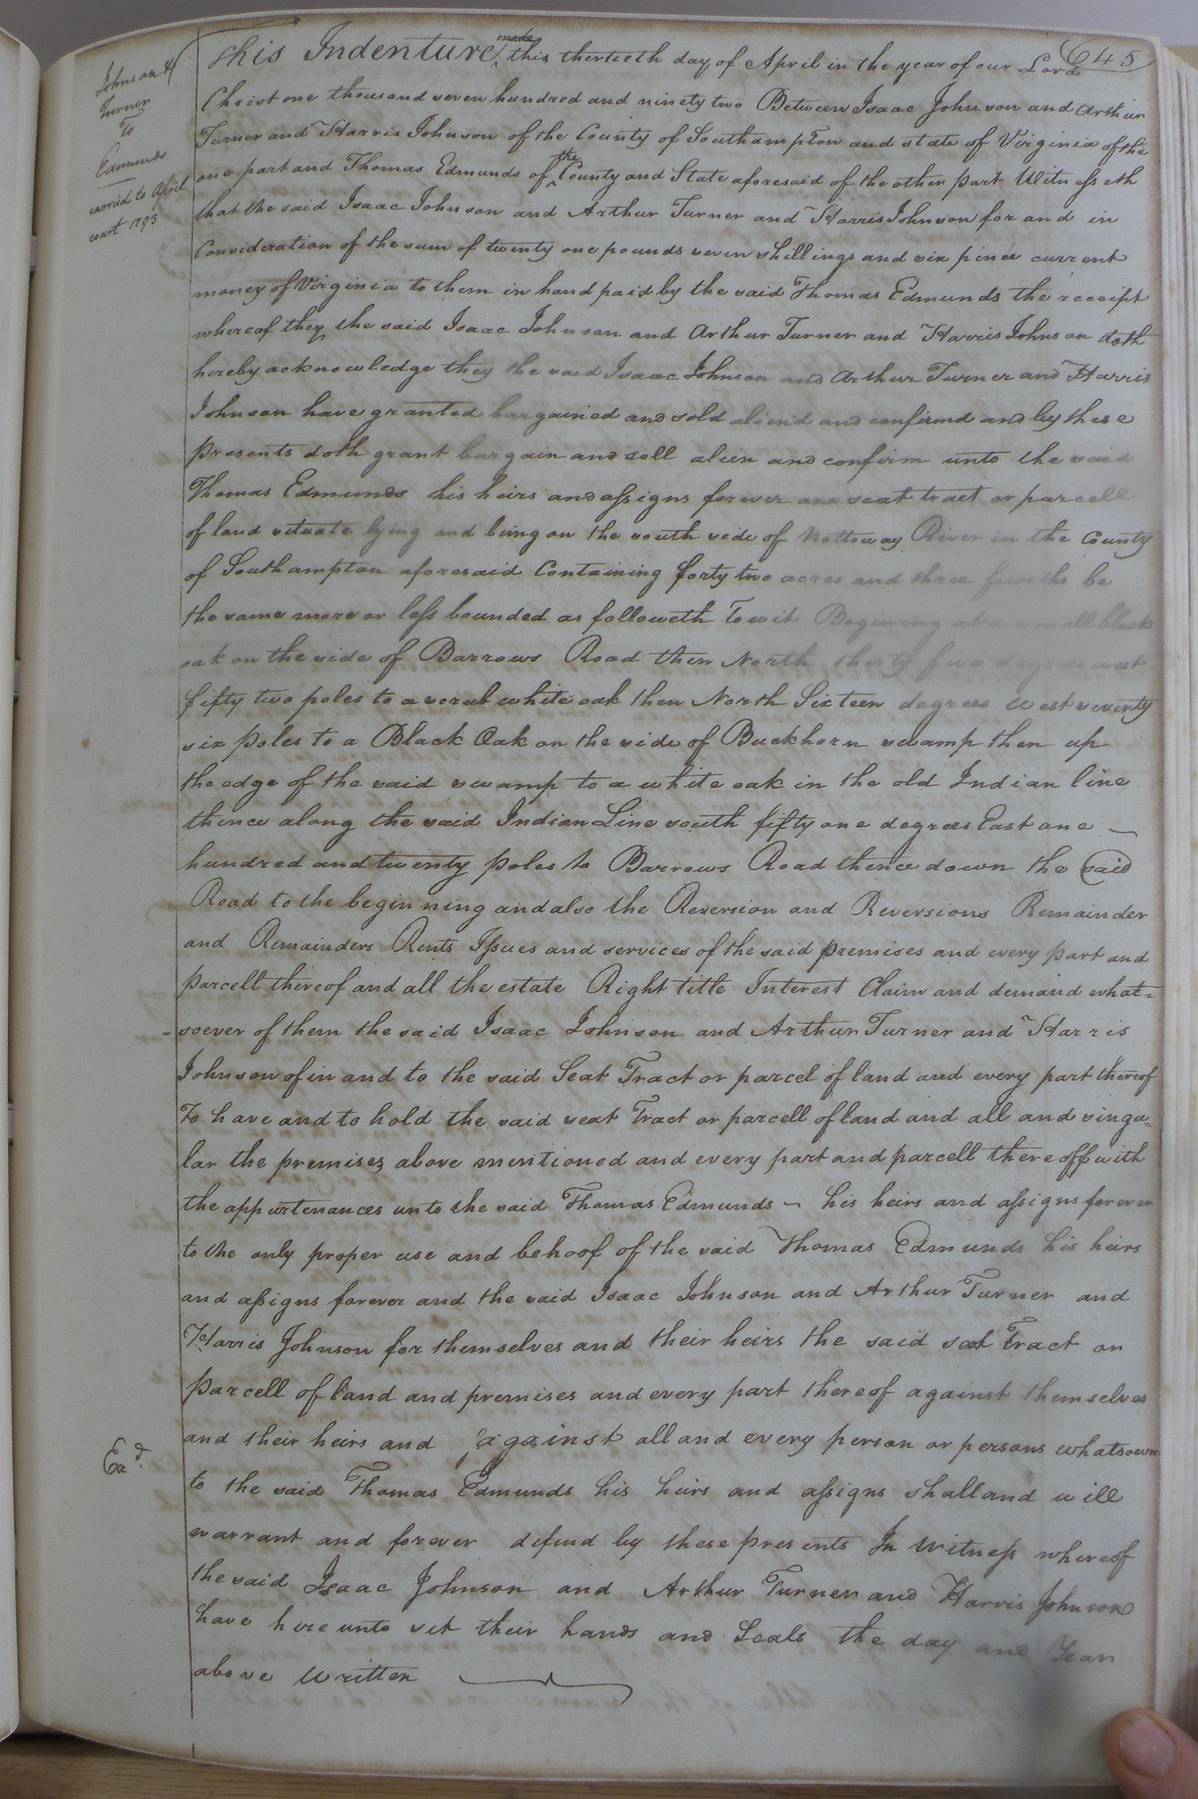 645
Johnson &
Turner
To
Edmunds
carried to April
court 1793
This Indenture made this thirtieth day of April in the year of our Lord
Christ one thousand seven hundred and ninety two Between Isaac Johnson and Arthur
Turner and Harris Johnson of the County of Southampton and state of Virginia of the
one part and Thomas Edmunds of the County and State aforesaid of the other part Witnesseth
that the said Isaac Johnson and Arthur Turner and Harris Johnson for and in
Consideration of the sum of twenty one pounds seven shillings and six pince current
money of Virginia to them in hand paid by the said Thomas Edmunds the receipt
whereof they the said Isaac Johnson and Arthur Turner and Harris Johnson doth
hereby acknowledge they the said Isaac Johnson and Arthur Turner and Harris
Johnson have granted bargained and sold aliend and confirmd and by these
presents doth grant bargain and sell alien and confirm unto the said
Thomas Edmunds his heirs and assigns forever one seat tract or parcell
of land situate lying and being on the south side of Nottoway River in the County
of Southampton aforesaid Containing forty two acres and three fourths be
the same more or less bounded as followeth To wit Begining at a small black
oak on the side of Barrows Road then North thirty five degrees west
fifty two poles to a scrub white oak then North Sixteen degrees West seventy
six poles to a Black Oak on the side of Buckhorn swamp then up
the edge of the said swamp to a white oak in the old Indian line
thence along the said Indian Line south fifty one degrees East one
hundred and twenty poles to Barrows Road thence down the said
Road to the beginning and also the Reversion and Reversions Remainder
and Remainders Rents Issues and services of the said premises and every part and
parcell thereof and all the estate Right title Interest Claim and demand what=
-soever of them the said Isaac Johnson and Arthur Turner and Harris
Johnson of in and to the said Seat Tract or parcel of land and every part thereof
To have and to hold the said seat Tract or parcell of land and all and singu=
lar the premises above mentioned and every part and parcell there off with
the appurtenances unto the said Thomas Edmunds his heirs and assigns forever
to the only proper use and behoof of the said Thomas Edmunds his heirs
and assigns forever and the said Isaac Johnson and Arthur Turner and
Harris Johnson for themselves and their heirs the said seat Tract or
Parcell of land and premises and every part thereof against themselves
and their heirs and against all and every person or persons whatsoever
Exd.
to the said Thomas Edmunds his heirs and assigns shall and will
warrant and forever defend by these presents In Witness whereof
the said Isaac Johnson and Arthur Turner and Harris Johnson
have here unto set their hands and Seals the day and Year
above Written